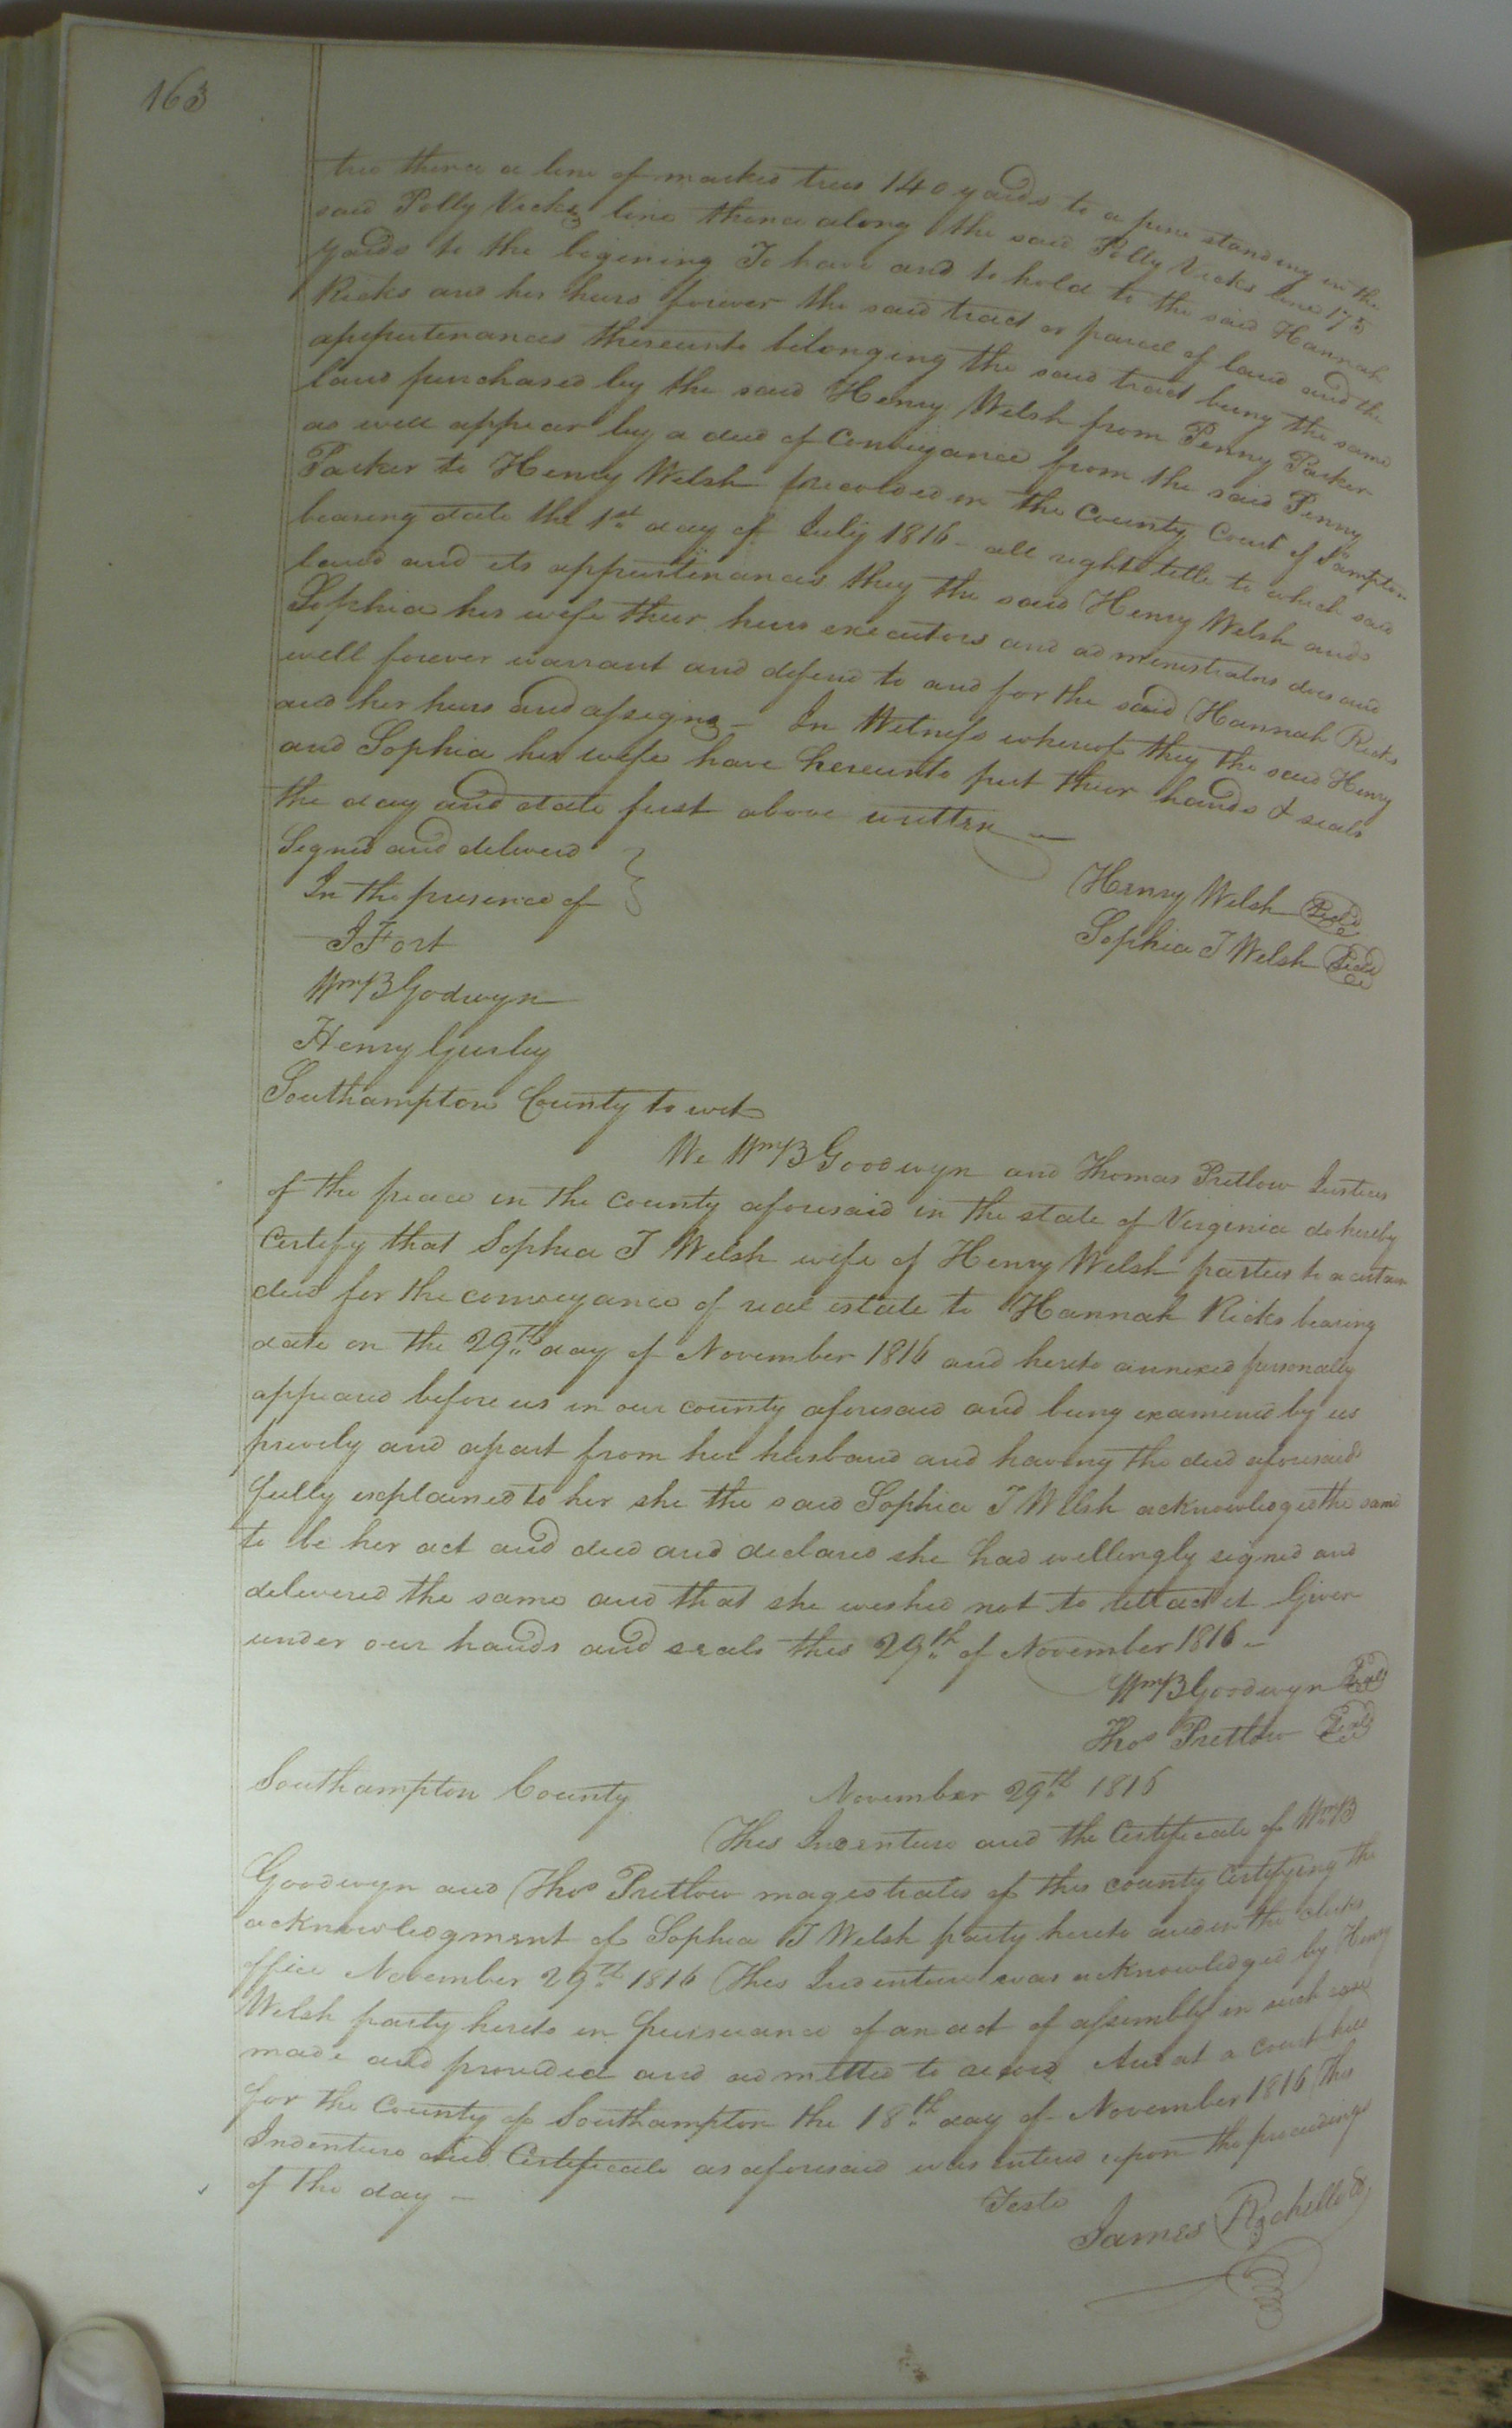 163
tree thence a line of marked trees 140 yards to a pine standing in the
said Polly Vicks line thence along the said Polly Vicks line 175
yards to the begining To have and to hold to the said Hannah
Ricks and her heirs forever the said tract or parcel of land and the
appurtenances thereunto belonging the said tract being the same
land purchased by the said Henry Welsh from Penny Parker
as will appear by a deed of Conveyance from the said Penny
Parker to Henry Welsh recorded in the County Court of So ampton
bearing date the 1st day of July 1816 - all right title to which said
land and its appurtenances they the said Henry Welsh and
Sophia his wife their heirs executors and administrators does and
will forever warrant and defend to and for the said Hannah Ricks
and her heirs and assigns - In Witness whereof they the said Henry
and Sophia his wife have hereunto put their hands & seals
the day and date first above written -
Signed and deliverd
In the presence of
Henry Welsh Seal
J Fort
Sophia T Welsh Seal
Wm B Godwyn
Henry Gurley
Southampton County to wit
We Wm B Goodwyn and Thomas Pretlow Justices
of the peace in the County aforesaid in the state of Virginia do hereby
Certify that Sophia T Welsh wife of Henry Welsh parties to a certain
deed for the conveyance of real estate to Hannah Ricks bearing
date on the 29th day of November 1816 and hereto annexed personally
appeared before us in our county aforesaid and being examined by us
privily and apart from her husband and having the deed aforesaid
fully explained to her she the said Sophia T Welsh acknowledged the same
to be her act and deed and declared she had willingly signed and
delivered the same and that she wished not to it Given
under our hands and seals this 29th of November 1816 -
Wm B Goodwyn Seal
Thos Pretlow Seal
Southampton County November 29th 1816
This Indenture and the Certificate of Wm B
Goodwyn and Thos Pretlow magistrates of this county Certifying the
acknowledgment of Sophia T Welsh party hereto and in the clerks
office November 29th 1816 This Indenture was acknowledged by Henry
Welsh party hereto in pursuance of an act of assembly in such case
made and provided and admitted to record And at a court held
for the County of Southampton the 18th day of November 1816 This
Indenture and Certificate as aforesaid was entered upon the proceedings
of the day -
Teste
James Rochelle